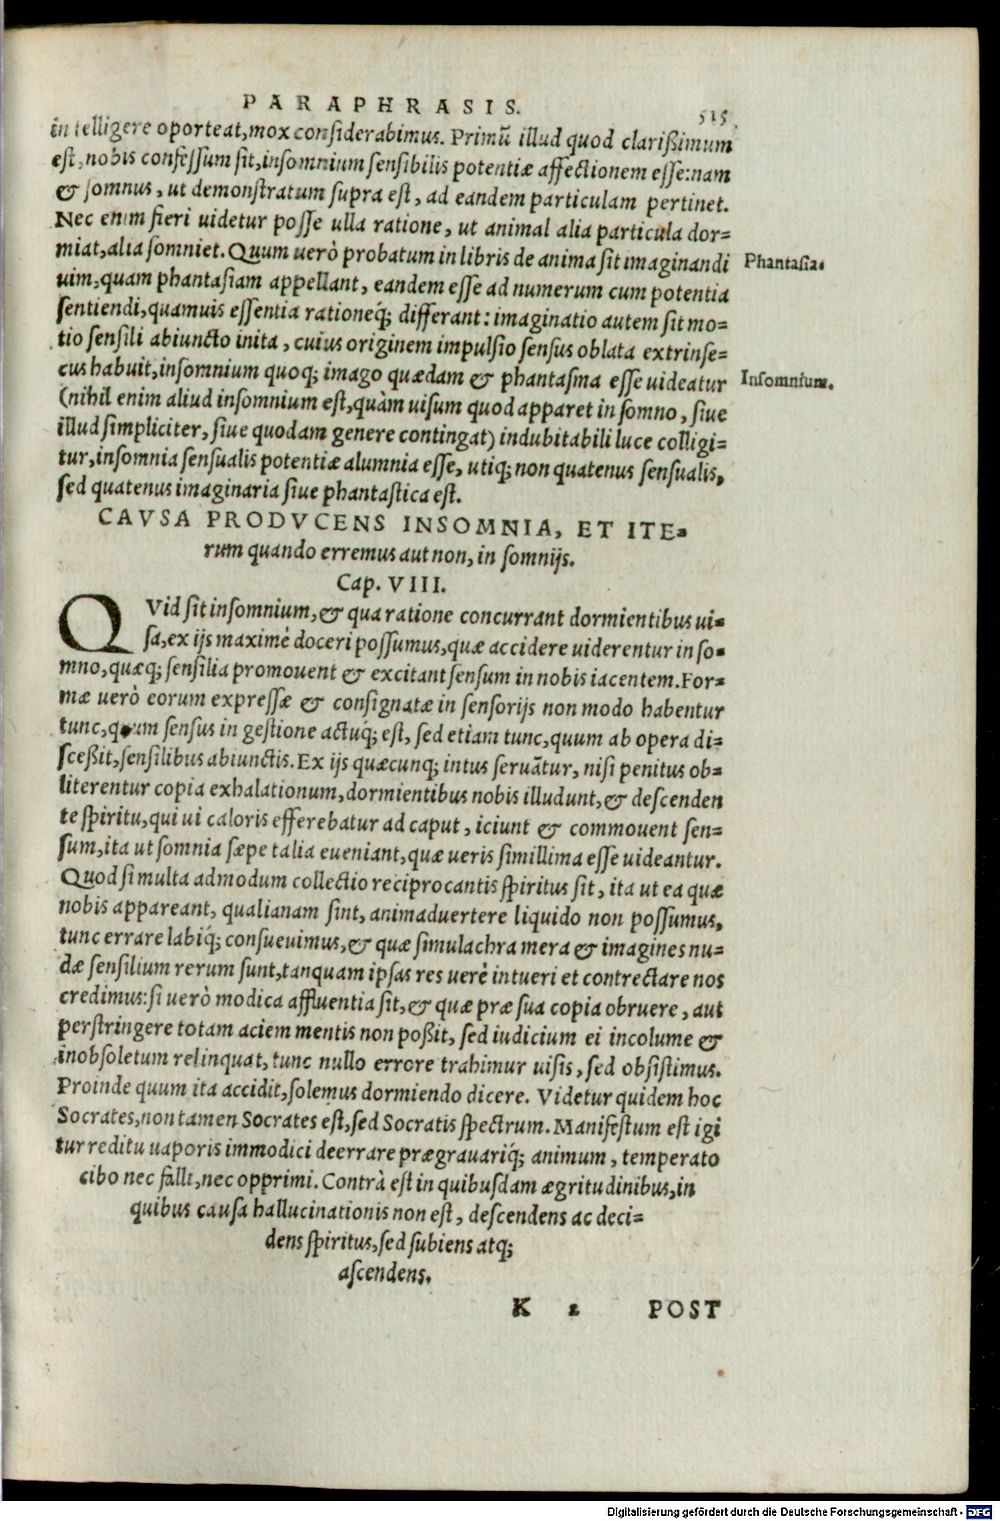 PARAPHRASIS.
515.
intelligere oporteat, mox considerabimus. Primũ illud quod clarißimum
est, nobis confessum sit, insomnium sensibilis potentiæ affectionem esse: nam
& somnus, ut demonstratum supra est, ad eandem particulam pertinet.
Nec enim fieri uidetur posse ulla ratione, ut animal alia particula dor-
miat, alia somniet. Quum uerò probatum in libris de anima sit imaginandi
Phantasia.
uim, quam phantasiam appellant, eandem esse ad numerum cum potentia
sentiendi, quamuis essentia rationeq́; differant: imaginatio autem sit mo-
tio sensili abiuncto inita, cuius originem impulsio sensus oblata extrinse-
cus habuit, insomnium quoq; imago quædam & phantasma esse uideatur
Insomnium.
(nihil enim aliud insomnium est, quàm uisum quod apparet in somno, siue
illud simpliciter, siue quodam genere contingat) indubitabili luce colligi-
tur, insomnia sensualis potentiæ alumnia esse, utiq; non quatenus sensualis,
sed quatenus imaginaria siue phantastica est.
CAVSA PRODVCENS INSOMNIA, ET ITE-
rum quando erremus aut non, in somnijs.
Cap. VIII.
QVid sit insomnium, & qua ratione concurrant dormientibus ui-
sa, ex ijs maximè doceri possumus, quæ accidere uiderentur in so-
mno, quæq; sensilia promouent & excitant sensum in nobis iacentem. For-
mæ uerò eorum expressæ & consignatæ in sensorijs non modo habentur
tunc, quum sensus in gestione actuq́; est, sed etiam tunc, quum ab opera di-
sceßit, sensilibus abiunctis. Ex ijs quæcunq; intus seruãtur, nisi penitus ob-
literentur copia exhalationum, dormientibus nobis illudunt, & descenden
te spiritu, qui ui caloris efferebatur ad caput, iciunt & commouent sen-
sum, ita ut somnia sæpe talia eueniant, quæ ueris simillima esse uideantur.
Quod si multa admodum collectio reciprocantis spiritus sit, ita ut ea quæ
nobis appareant, qualianam sint, animaduertere liquido non possumus,
tunc errare labiq́; consueuimus, & quæ simulachra mera & imagines nu-
dæ sensilium rerum sunt, tanquam ipsas res uerè intueri et contrectare nos
credimus: si uerò modica affluentia sit, & quæ præ sua copia obruere, aut
perstringere totam aciem mentis non poßit, sed iudicium ei incolume &
inobsoletum relinquat, tunc nullo errore trahimur uisis, sed obsistimus.
Proinde quum ita accidit, solemus dormiendo dicere. Videtur quidem hoc
Socrates, non tamen Socrates est, sed Socratis spectrum. Manifestum est igi
tur reditu uaporis immodici deerrare prægrauariq́; animum, temperato
cibo nec falli, nec opprimi. Contrà est in quibusdam ægritudinibus, in
quibus causa hallucinationis non est, descendens ac deci-
dens spiritus, sed subiens atq;
ascendens.
K 2 POST
Digitalisierung gefördert durch die Deutsche Forschungsgemeinschaft - DFG